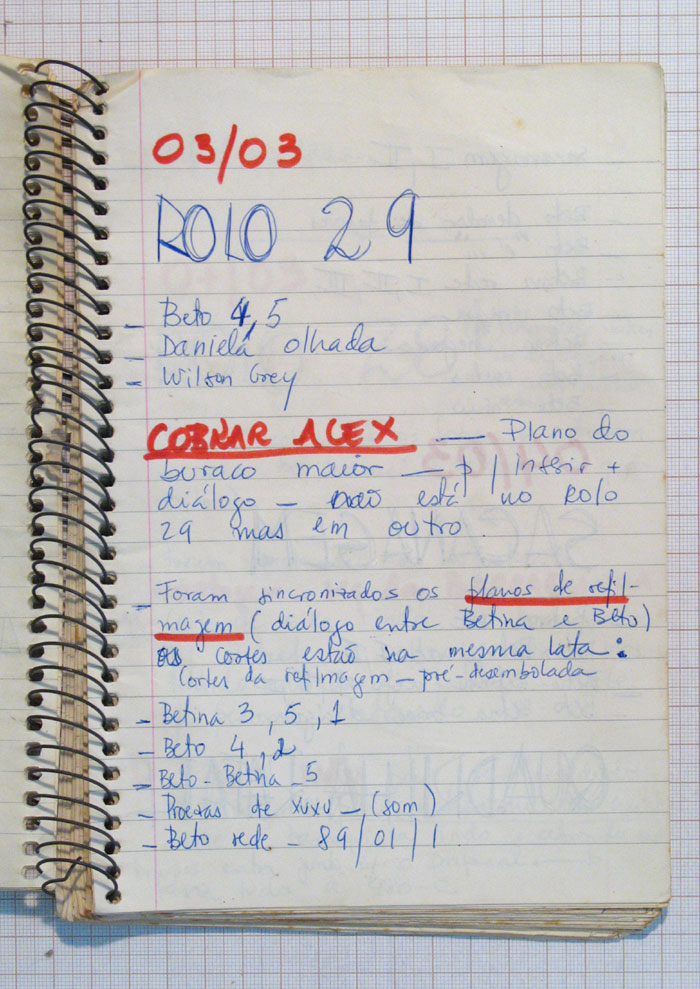 03/03
ROLO 29
– Beto 4, 5
– Daniela olhada
– Wilson Grey
COBRAR ALEX — Plano do
buraco maior — p/ inserir +
diálogo – não está no ROLO
29 mas em outro.
– Foram sincronizados os planos de refil-
magem (diálogo entre Betina e Beto)
os cortes estão na mesma lata:
Cortes da refilmagem – pré-desembolada
– Betina 3, 5, 1
– Beto 4, 2
– Beto - Betina – 5
– Proezas de xuxu – (som)
– Beto rede – 89/01/1